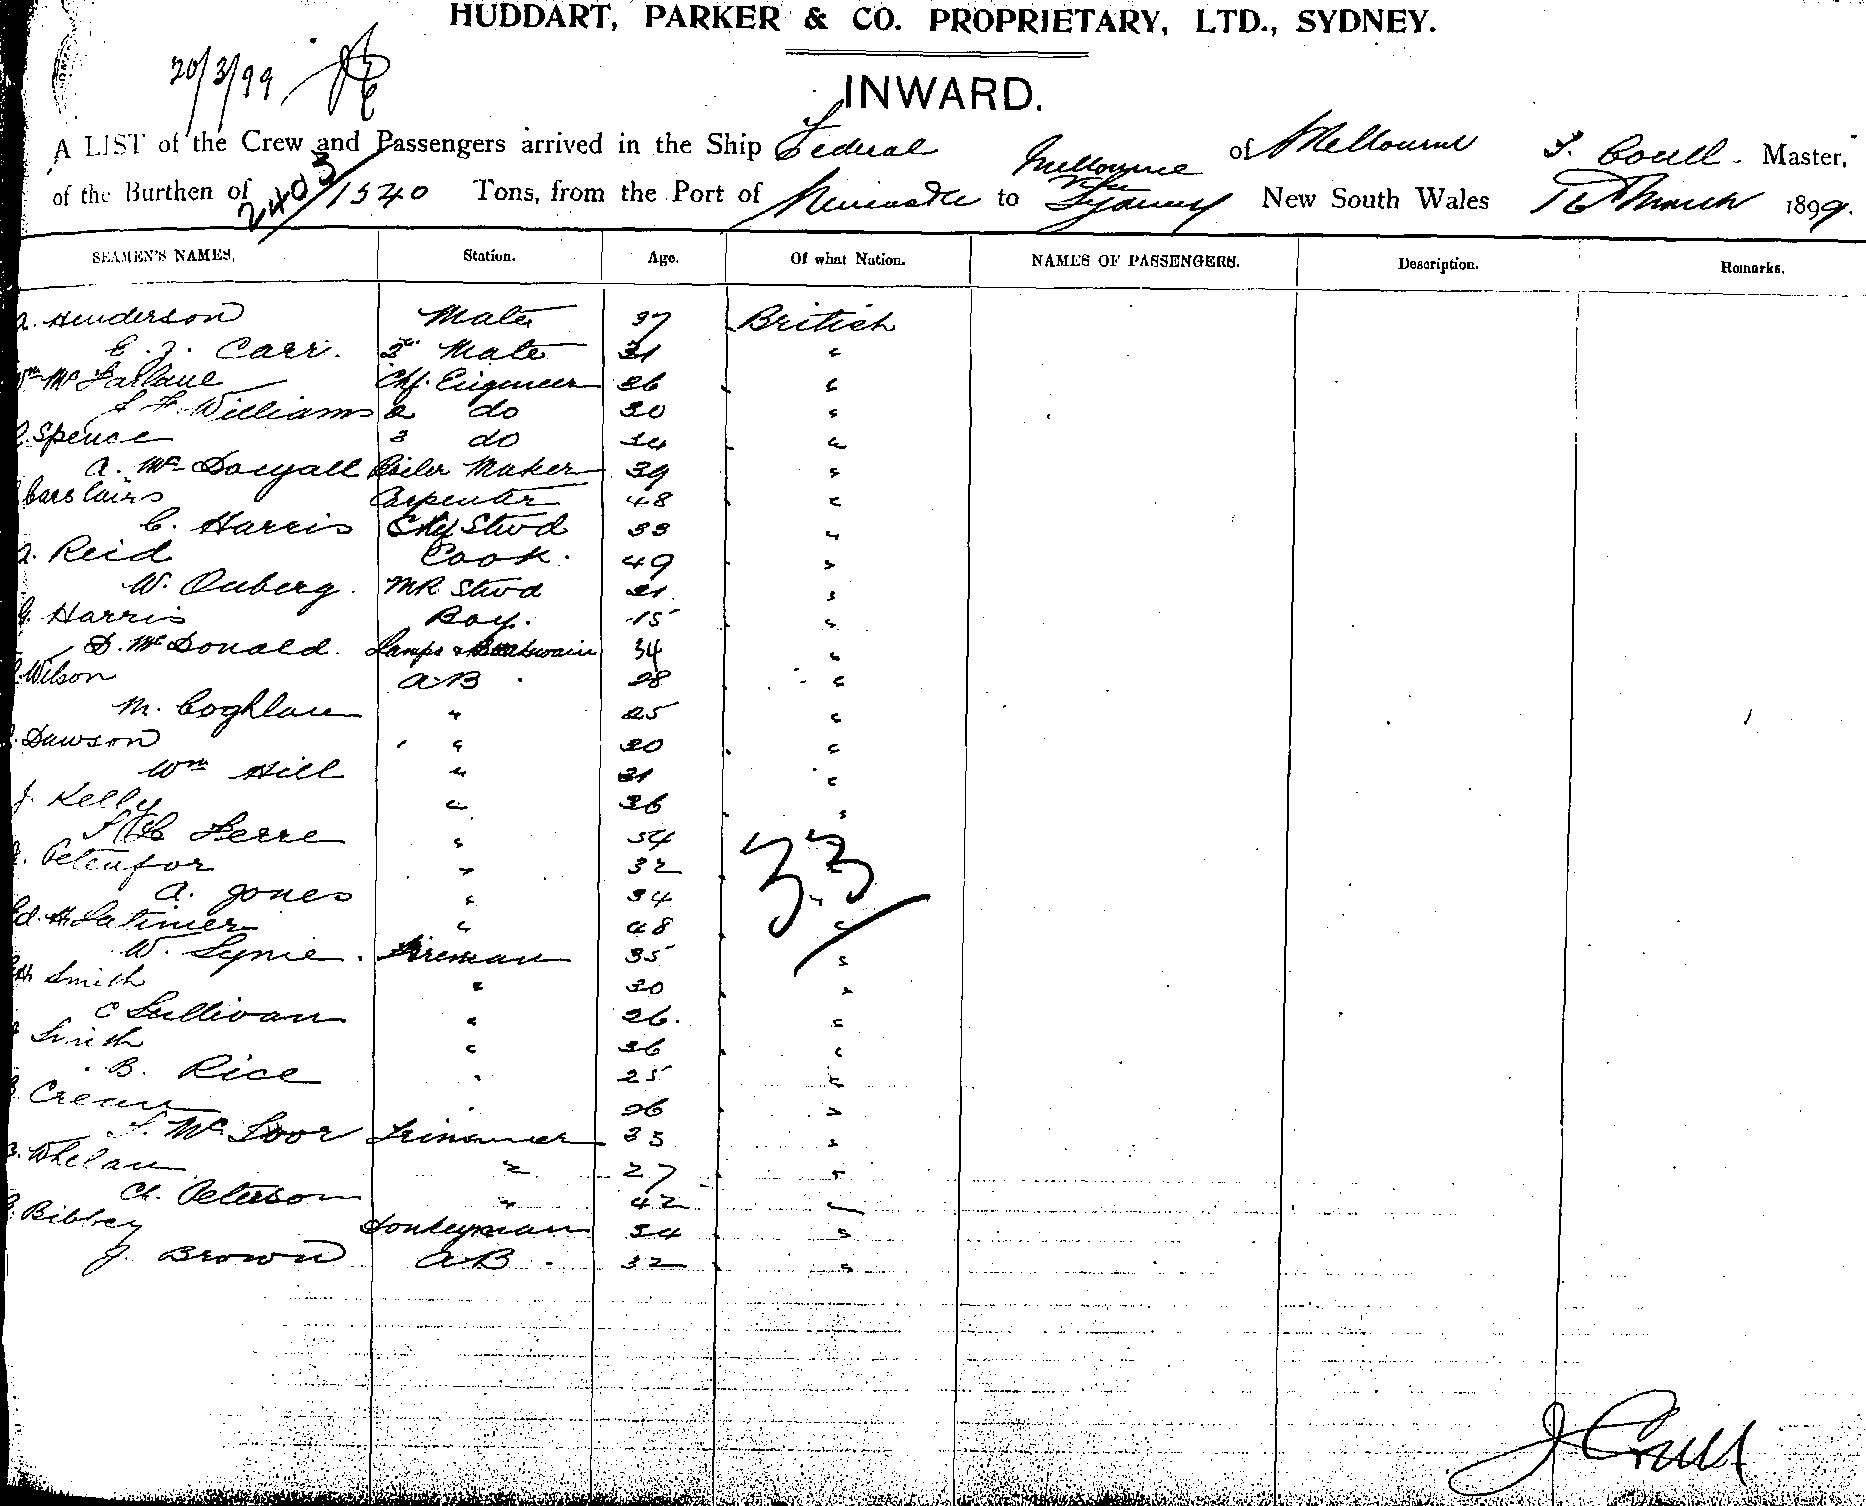 HUDDART, PARKER & CO. PROPRIETARY, LTD., SYDNEY.
20/3/99
INWARD.
A LIST of the Crew and Passengers arrived in the Ship Federal of Melbourne J. Coull. Master,
of the Burthen of 2403/1540 Tons, from the Port of Newcastle to Melbourne Sydney New South Wales 16th March 1899.
SEAMEN'S NAMES. Station. Age. Of what Nation. NAMES OF PASSENGERS. Description. Remarks.
A. Henderson Mate 37 British
E. J. Carr. 2nd Mate 31 "
Wm Mc Farlane Chf. Engineer 36 "
Williams 2 do 30 "
Spence 3 do 34 "
A. Mc Dougall Boiler Maker 39 "
Carstairs Carpenter 48 "
C. Harris Chf Stwd 33 "
A. Reid Cook. 49 "
W. Ouberg. MR Stwd 21 "
G. Harris Boy. 15 "
D. McDonald. Lamps & Boatswain 34 "
Wilson AB 28 "
M. Coghlan " 25 "
Dawson " 20 "
Wm Hill " 31 "
J. Kelly " 36 "
" 54 "
" 32 "
33
A. Jones " 34 "
Ed. H. Latimer " 48 "
W. Fireman 35 "
Smith " 30 "
C Sullivan " 26. "
Smith " 36 "
B. Rice " 25 "
Crean " 26 "
Trimmer 33 "
Whelan " 27 "
Ch. Peterson " 42 "
Bibbey Donkeyman 34 "
J. Brown AB 32 "
J Coull